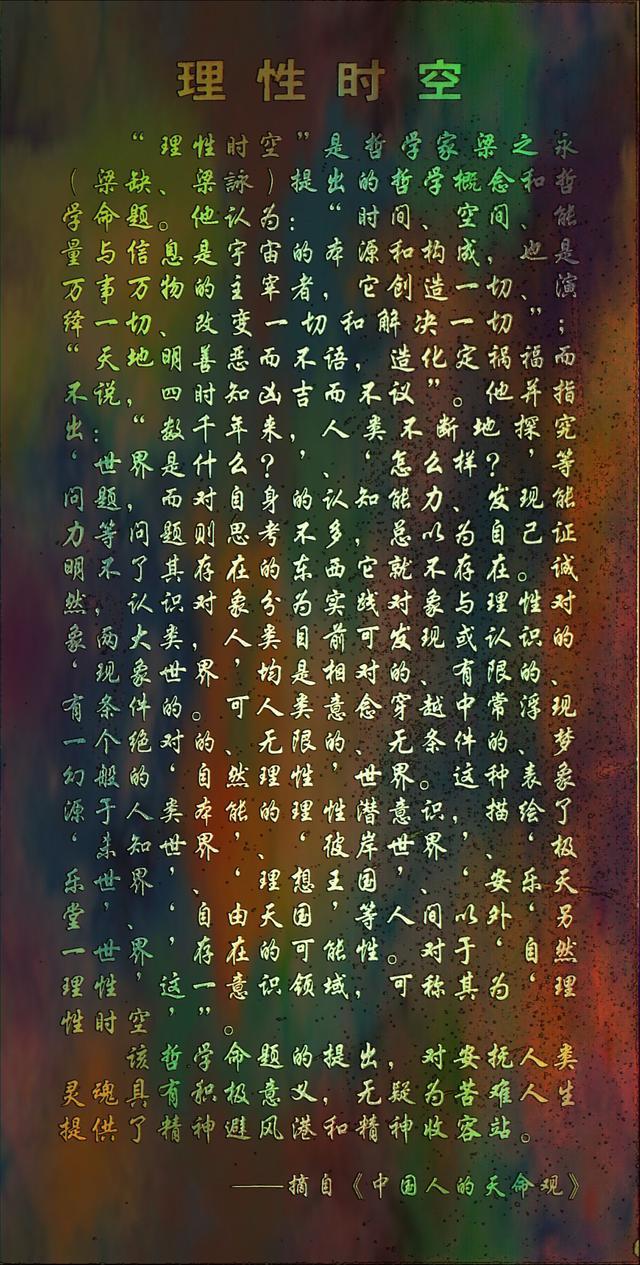 理性时空
“理性时空”是哲学家梁之永
（梁缺、梁詠）提出的哲学概念和哲
学命题。他认为：“时间、空间、能
量与信息是宇宙的本源和构成，也是
万事万物的主宰者，它创造一切、演
绎一切、改变一切和解决一切”；
“天地明善恶而不语，造化定祸福而
不说，四时知凶吉而不议”。他并指
出：“数千年来，人类不断地探究
‘世界是什么？’、‘怎么样？’等
问题，而对自身的认知能力、发现能
力等问题则思考不多，总以为自己证
明不了其存在的东西它就不存在。诚
然，认识对象分为实线对象与理性对
象两大类，人类目前可发现或认识的
‘现象世界’均是相对的、有限的、
有条件的。可人类意念穿越中常浮现
一个绝对的、无限的、无条件的、梦
幻般的‘自然理性’世界。这种表象
源于人类本能的理性潜意识，描绘了
‘未知世界’、‘彼岸世界’、‘极
乐世界’、‘理想王国’、‘安乐天
堂’、‘自由天国’等人间以外‘另
一世界’存在的可能性。对于‘自然
理性’这一意识领域，可称其为‘理
性时空’”。
该哲学命题的提出，对安抚人类
灵魂具有积极意义，无疑为苦难人生
提供了精神避风港和精神收容站。
——摘自《中国人的天命观》